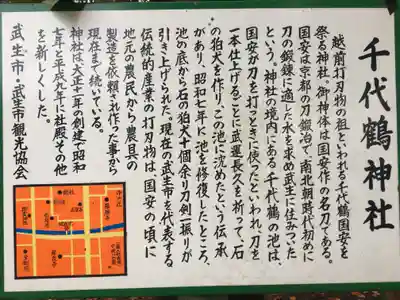 千代鶴神社
越前打刃物の祖といわれる千代鶴国安を
祭る神社。御神体は国安作の名刀である。
国安は京都の刀鍛冶で、南北朝時代初めに
刀の鍛錬に適した水を求め武生に住みついた
という。神社の境内にある「千代鶴の池」は、
国安が刀を打つときに使ったといわれ、刀を
一本仕上げるごとに武運長久を祈って、石
の狛犬を作り、この池に沈めたという伝承
があり、昭和七年に池を修復したところ、
池の底から石の狛犬十個余り刀剣一振りが
引き上げられた。現在の武生市を代表する
伝統的産業の打刃物は、国安の頃に
地元の農民から農具の
製造を依頼され作った事から
現在まで続いている。
神社は大正十一年の創建で昭和
七年と平成九年に社殿その他
を新しくした。
武生市・武生市観光協会